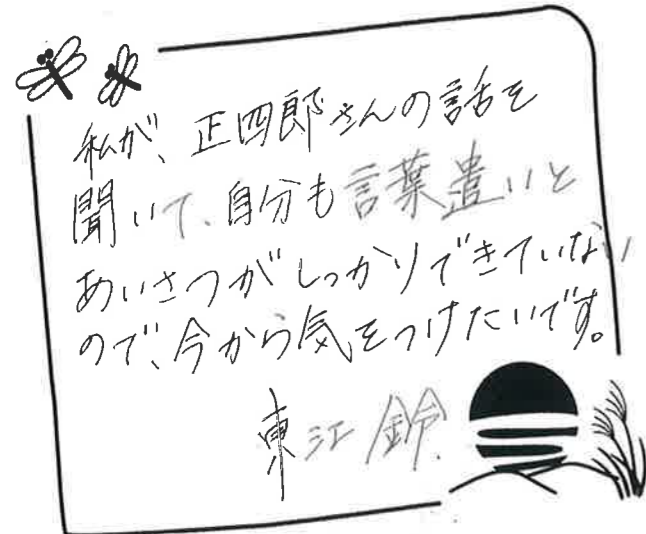 私が、正四郎さんの話を
聞いて、自分も言葉遣いと
あいさつがしっかりできていない
ので、今から気をつけたいです。
東江 鈴